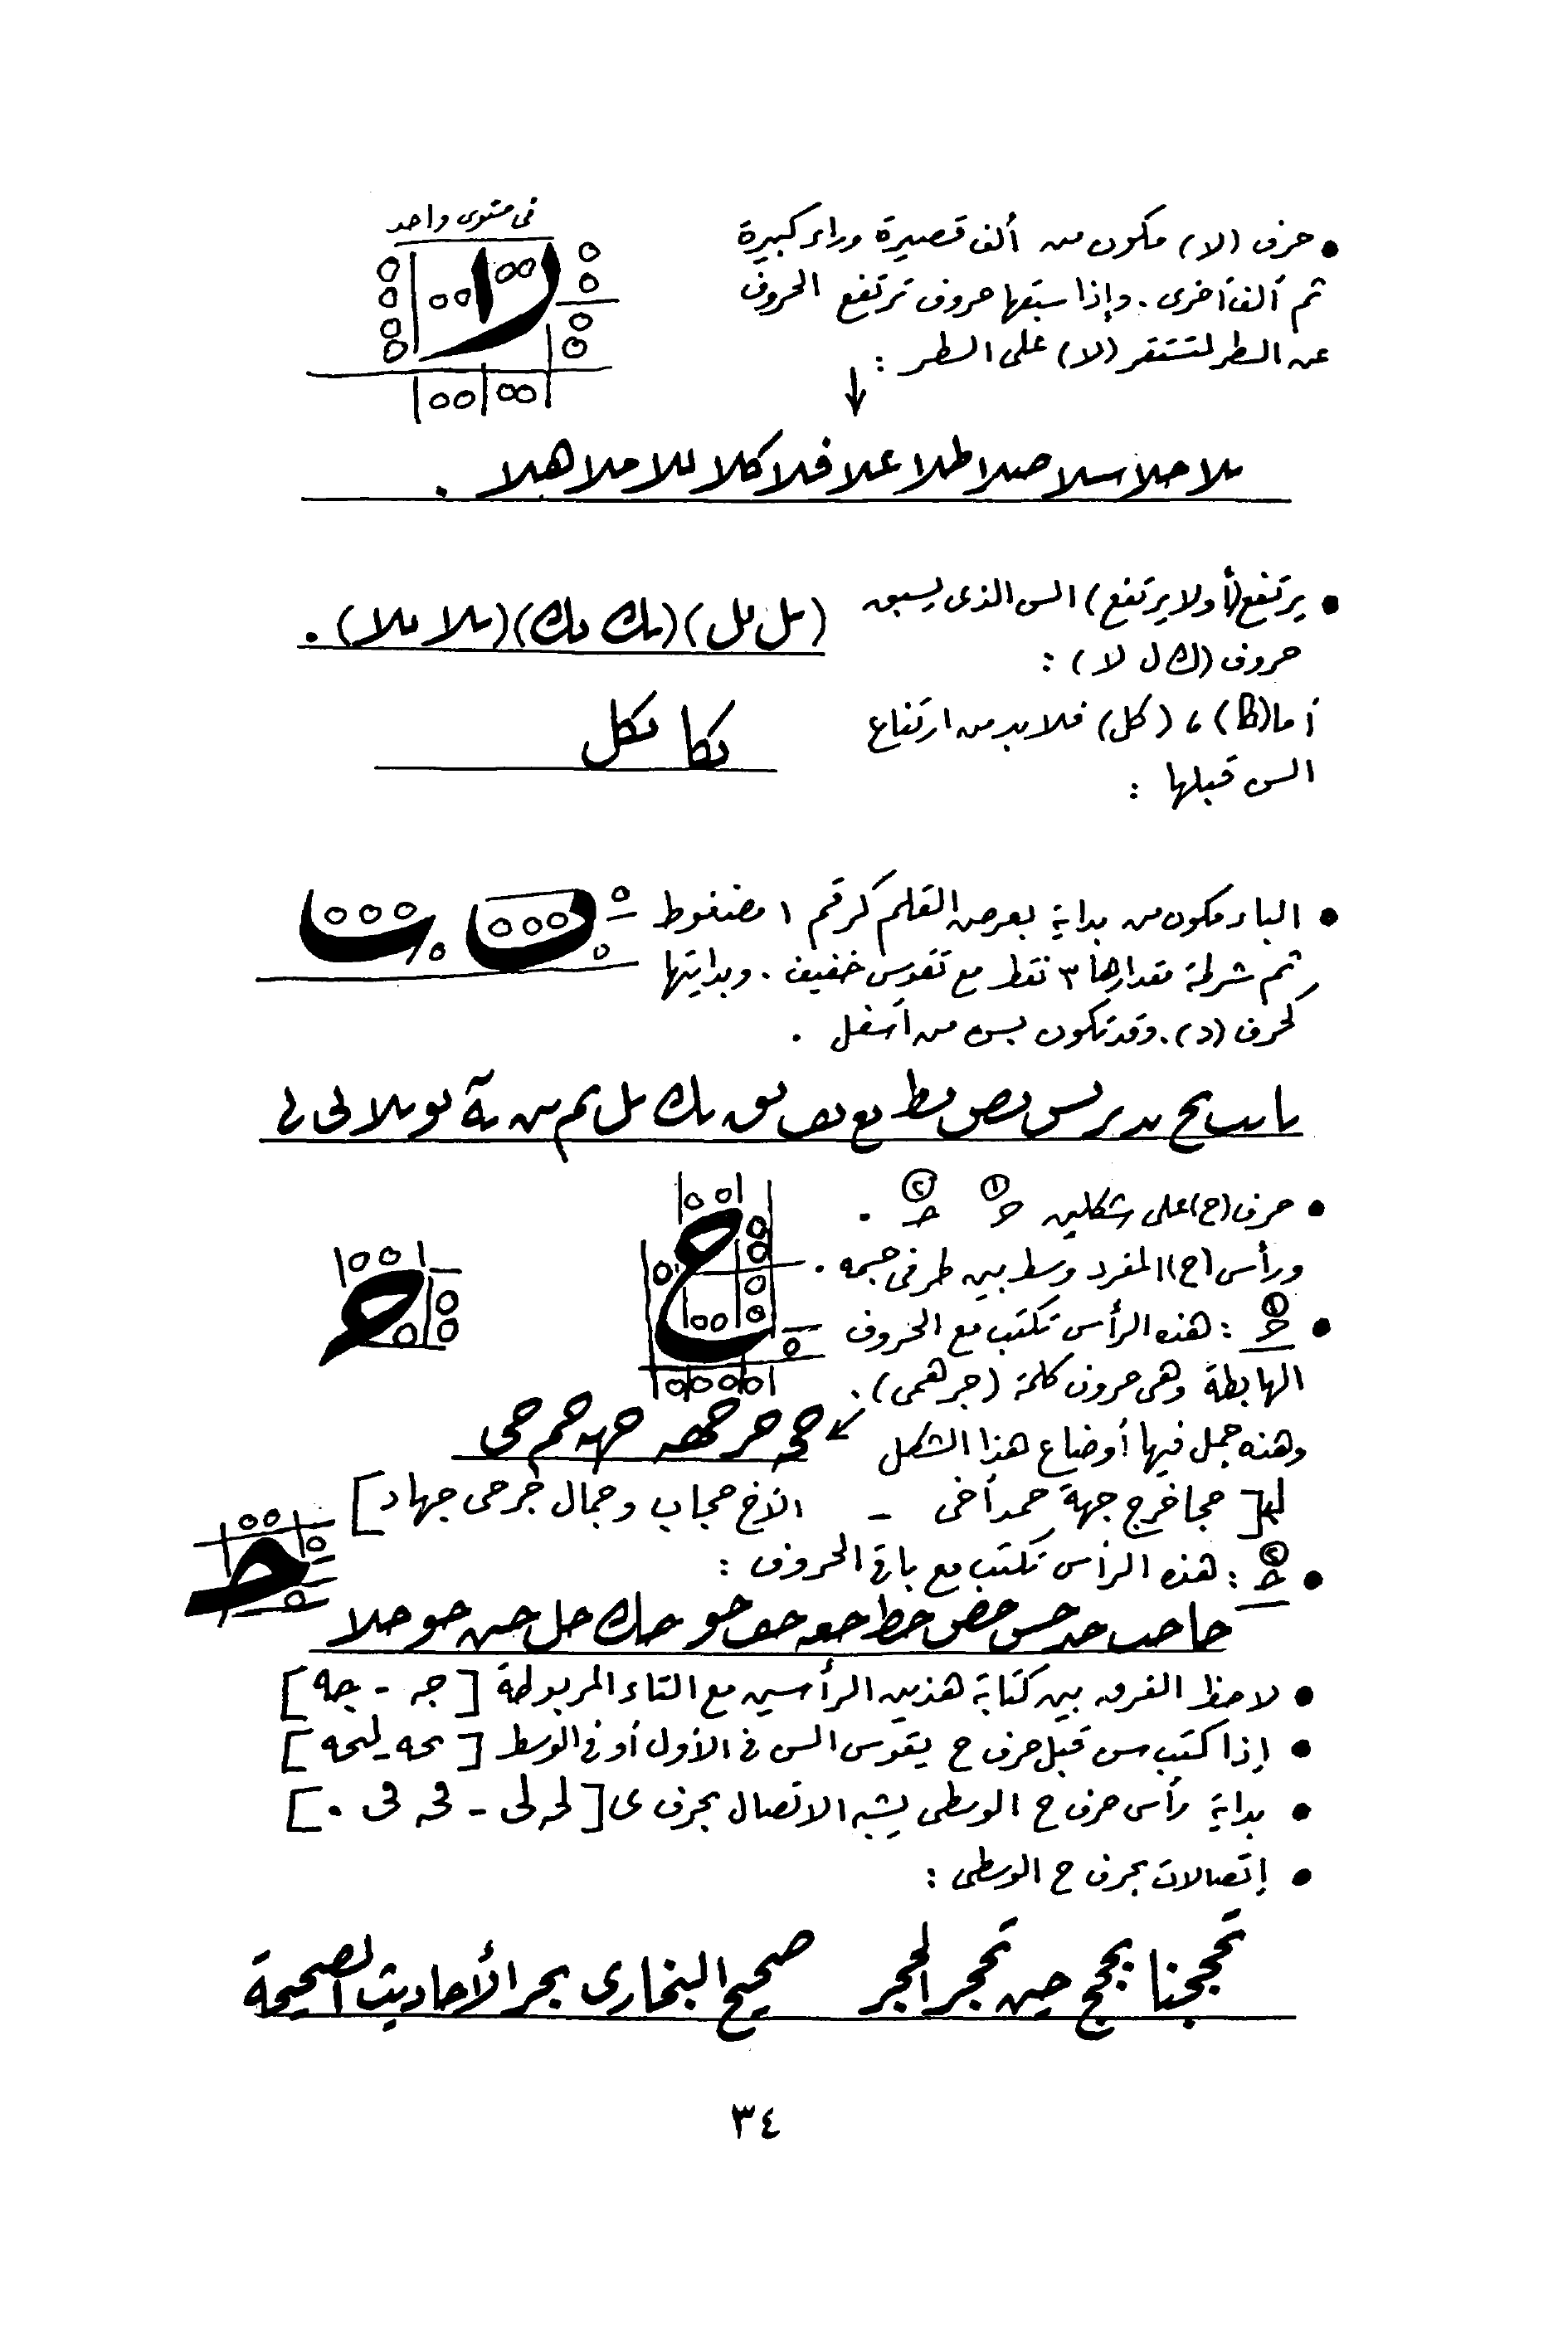 في مستوى واحد
• حرف (لا) مكون من ألف قصيرة وراء كبيرة
ثم ألف أخرى. وإذا سبقها حروف ترتفع الحروف
عن السطر لتستقر (لا) على السطر :
ىلا حلا سلا صلا طلا علا فلا كلا للا ملا هلا .
• يرتفع (أو لا يرتفع) السن الذى يسبق
حروف (ك ل لا) :
(ىل ىل) (ىك ىك) (ىلا ىلا) .
أما (كا) ، (كل) فلا بد من ارتفاع
السن قبلها :
ىكا ىكل
• الباء مكون من بداية بعرض القلم كرقم ١ مضغوط
ثم شرطة مقدارها ٣ نقط مع تقوس خفيف . وبدايتها
كحرف (د). وقد تكون بسن من أسفل .
ىا ىب ىح ىد ىر ىس ىص ىط ىع ىف ىق ىك ىل ىم ىن ىة ىو ىلا ىى
• حرف (ح) على شكلين ① حـ ② حـ .
ورأس (ح) المفرد وسط بين طرفى جسمه .
• ① حـ : هذه الرأس تكتب مع الحروف
الهابطة وهى حروف كلمة (جرهمى) .
وهذه جمل فيها أوضاع هذا الشكل
حح حر حهه حهه حم حى
[حجا خرج جهة حمد أخى - الأخ حجاب وجمال جرحى جهاد]
• ② حـ : هذه الرأس تكتب مع باقى الحروف :
حا حب حد حس حص حط حع حف حو حك حل حن حو حلا
• لاحظ الفرق بين كتابة هذين الرأسين مع التاء المربوطة [جه - جه]
• إذا كتب سن قبل حرف ح يقوس السن فى الأول أو فى الوسط [ىحه - لىحه]
• بداية رأس حرف ح الوسطى يشبه الاتصال بحرف ى [لحه لى - فحه فى .]
• إتصالات بحرف ح الوسطى :
تحججنا بحجج حين تحجر الحجر صحيح البخارى بحر الأحاديث الصحيحة
٣٤